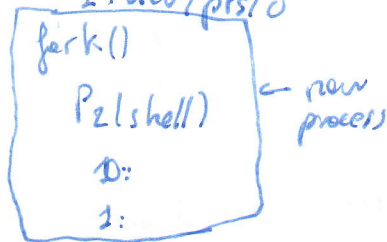 fork()
P2(shell)
← new
process
0:
1: